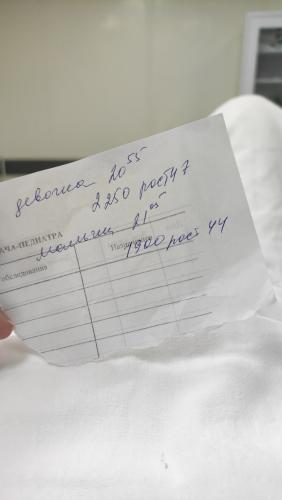 девочка 20⁵⁵
2250 рост 47
мальчик 21⁰⁵
1900 рост 44
АЧА-ПЕДИАТРА
обследования